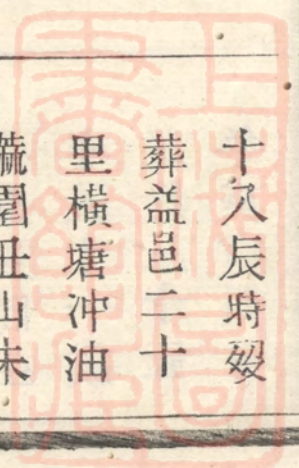 十八辰時歿
葬益邑二十
里橫塘冲油
蔴園丑山未